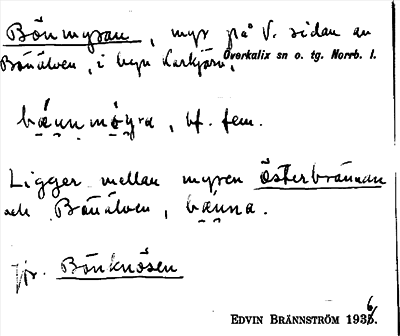 Bönmyran, myr på V. sidan av
Bönälven, i byn Larkjärn, Överkalix sn o. tg. Norrb. l.
bænnmöyra, bf. fem.
Ligger mellan myren Österbrännan
och Bönälven, bænna.
Jfr. Bönknösen
EDVIN BRÄNNSTRÖM 1936